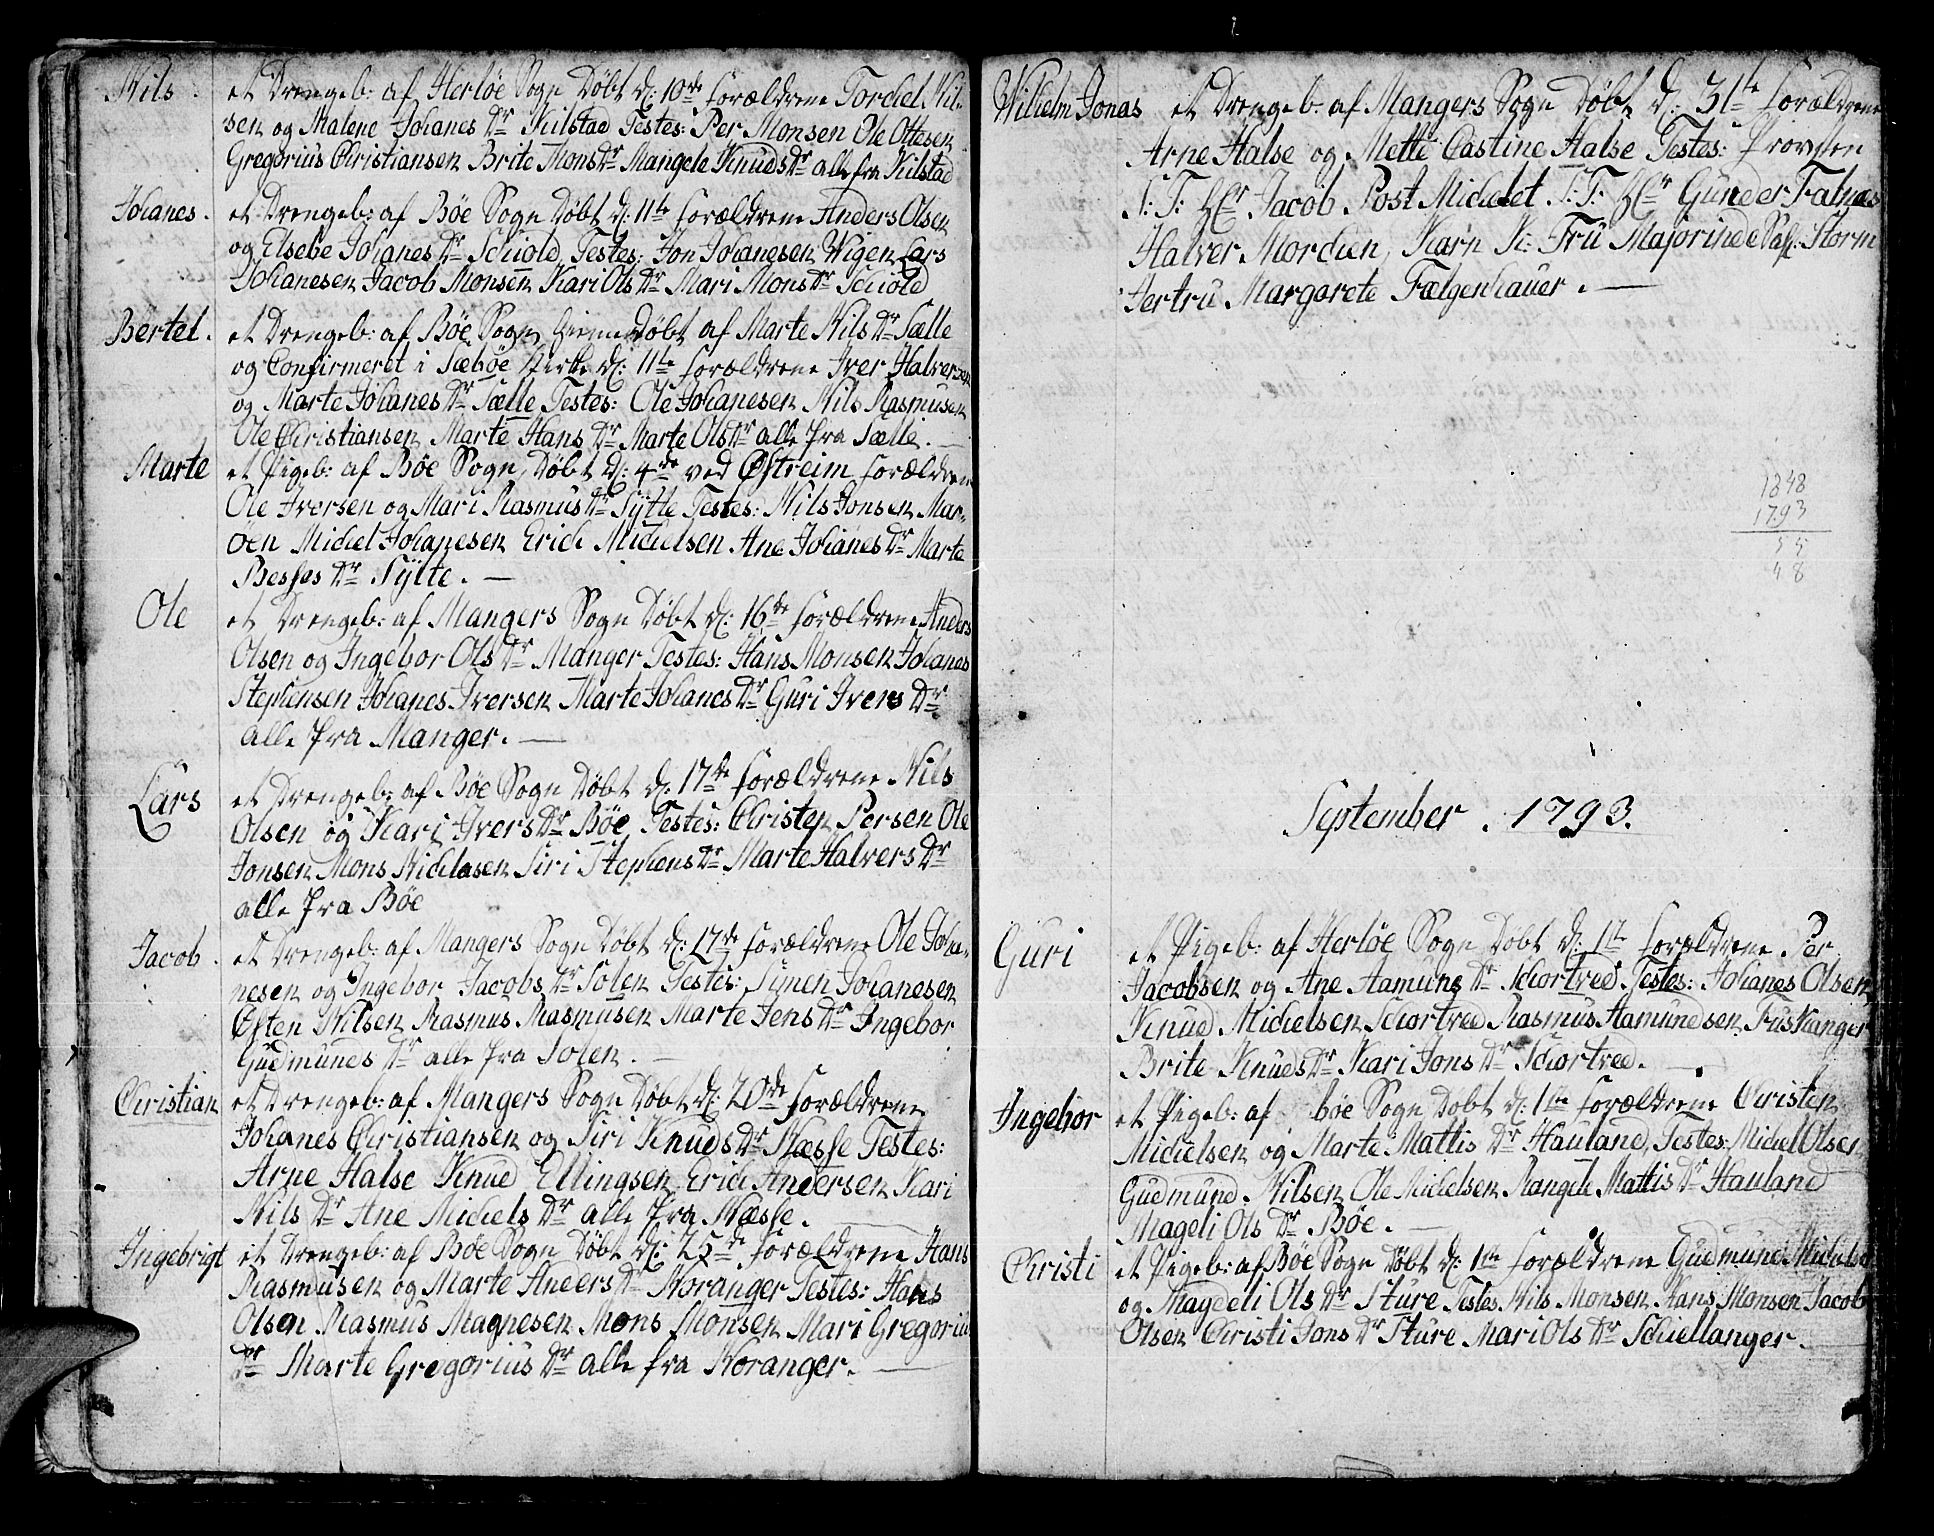 Nils. et Drengeb: af Herløe Sogn Døbt d: 10de Forældrene Torchel Nil-
sen og Malene Johanes Dr Kilstad Testes: Per Monsen Ole Ottesen
Gregorius Christiansen Brite Mons Dr Mangela Knuds Dr alle fra Kilstad
Johanes. et Drengeb: af Bøe Sogn Døbt d: 11te Forældrene Anders Olsen
og Elsebe Johanes Dr Schiold Testes: Jon Johanesen Wigen Lars
Johanesen Jacob Monsen Kari Ols Dr Mari Mons Dr Schiold
Bertel. et Drengeb: af Bøe Sogn hiemedøbt af Marte Nils Dr Sælle
og Confirmeret i Sæbøe Kirke d: 11te Forældrene Iver Halversen
og Marte Johanes Dr Sælle Testes: Ole Johanesen Nils Rasmusen
Ole Christiansen Marte Hans Dr Marte Ols Dr alle fra Sælle. —
Marte et Pigeb: af Bøe Sogn Døbt d: 4de ved Østreim Forældrene
Ole Iversen og Mari Rasmus Dr Sÿlte Testes: Nils Jonsen Mar-
øen Michel Johanesen Erich Michelsen Ane Johanes Dr Marte
Besses Dr Sÿlte. —
Ole et Drengeb: af Mangers Sogn Døbt d: 16de Forældrene Anders
Olsen og Ingebor Ols Dr Manger Testes: Hans Monsen Johanes
Stephensen Johanes Iversen Marte Johanes Dr Guri Ivers Dr
alle fra Manger. —
Lars et Drengeb: af Bøe Sogn Døbt d: 17de Forældrene Nils
Olsen og Kari Ivers Dr Bøe Testes: Christen Persen Ole
Jonsen Mons Nichlasen Siri Stephens Dr Marte Halvers Dr
alle fra Bøe
Jacob. et Drengeb: af Mangers Sogn Døbt d: 17de Forældrene Ole Joha-
nesen og Ingebor Jacobs Dr Solen Testes: Simen Johanesen
Østen Nilsen Rasmus Rasmusen Marte Jens Dr Ingebor
Gudmunds Dr alle fra Solen. —
Christian et Drengeb: af Mangers Sogn Døbt d: 20de Forældrene
Johanes Christiansen og Siri Knuds Dr Næsse Testes:
Arne Halse Knud Ellingsen Erich Andersen Kari
Nils Dr Ane Michels Dr alle fra Næsse.
Ingebrigt et Drengeb: af Bøe Sogn Døbt d: 25de Forældrene Hans
Rasmusen og Marte Aneers Dr Noranger Testes: Hans
Olsen Rasmus Magnesen Mons Monsen Mari Gregorius
Dr Marte Gregorius Dr alle fra Noranger. —
Wilhelm Jonas et Drengeb: af Mangers Sogn Døbt d: 31te Forældrene
Arne Halse og Mette Castine Halse Testes: Provsten
S: T: Hr Jacob Post Michelet S: T: Hr Gunder Falnæs
Halver Mordien, Karn K: Fru Majorinde Storm
Jertru Margarete Fælgenhauer. —
1848
1793
55
48
September. 1793.
Guri et Pigeb: af Herløe Sogn Døbt d: 1te Forældrene Per
Jacobsen og Ane Aamuns Dr Schiortred Testes: Johanes Olsen
Knud Michelsen Schiortred Rasmus Aamundsen Fuskanger
Brite Knuds Dr Kari Jons Dr Schiortred. —
Ingebor et Pigeb: af bøe Sogn Døbt d: 1te Forældrene Christen
Michelsen og Marte Mattis Dr Hauland, Testes: Michel Olsen
Gudmund Nilsen Ole Michelsen Rangele Mattis Dr Hauland
Mageli Ols Dr Bøe. —
Christi et Pigeb: af Bøe Sogn Døbt d: 1te Forældrene Gudmund Michelsen
og Magdeli Ols Dr Sture Testes Nils Monsen Hans Monsen Jacob
Olsen Christi Jons Dr Sture Mari Ols Dr Schiellanger.